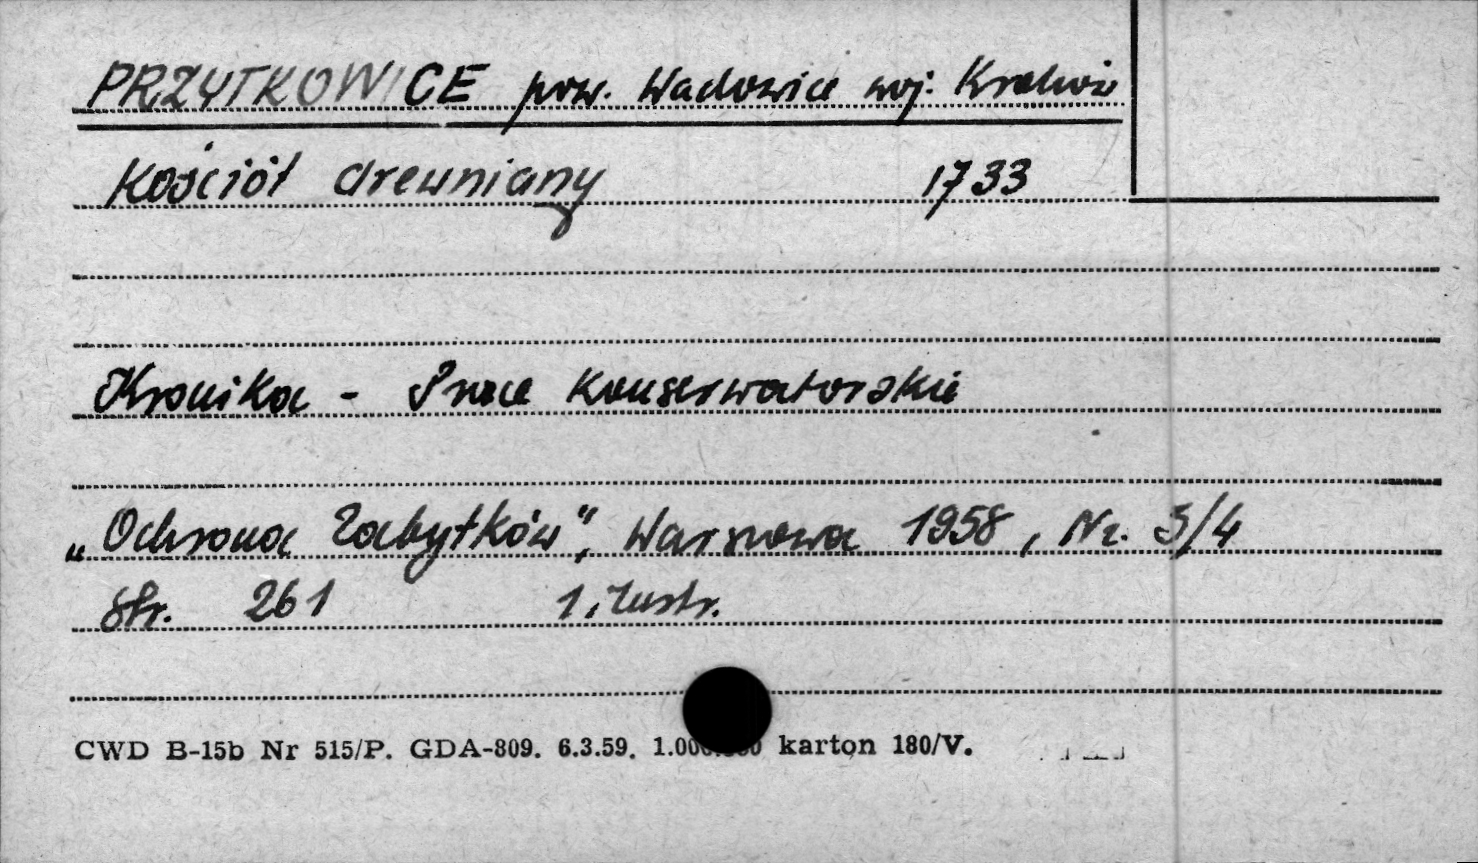 PRZYTKOWICE pow. Wadowice woj. Kraków
Kościół drewniany 1733
Kronika - Prace Konserwatorskie
„Ochrona Zabytków", Warszawa 1958, Nr. 3/4
str. 261 1 ilustr.
CWD B-15b Nr 515/P. GDA-809. 6.3.59. 1.000.000 karton 180/V.